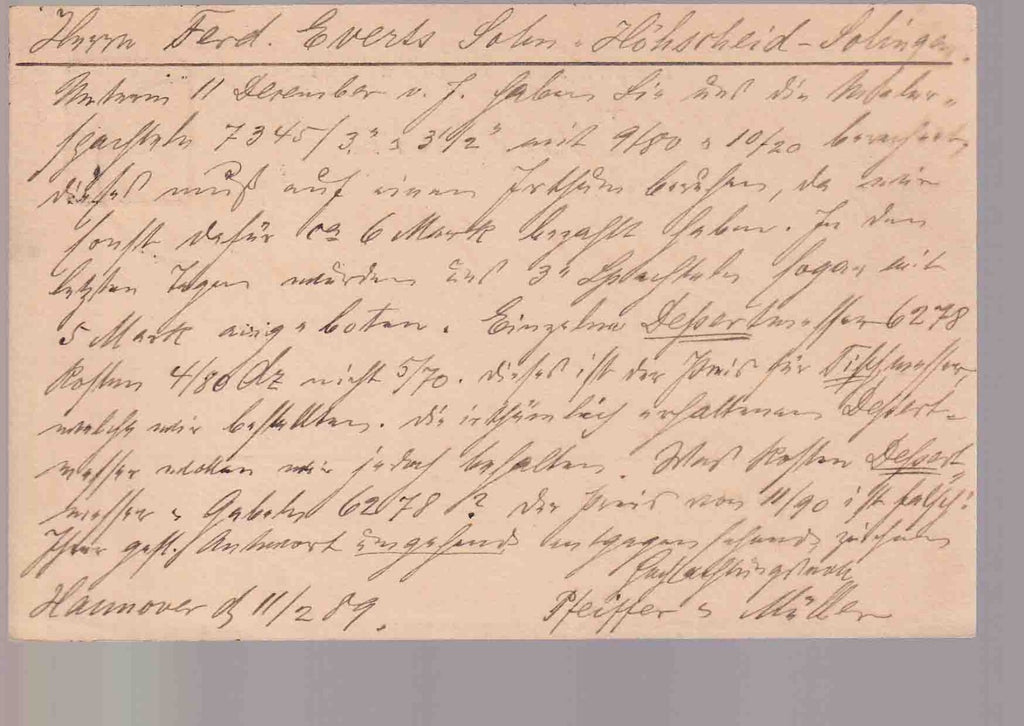 Herrn Ferd. Everts Sohn, Höhscheid-Solingen.
Unterm 11 December v. J. haben Sie uns die Maler-
spachteln 7345/3" u 3 1/2" mit 9/80 u 10/20 berechnet,
dieses muß auf einen Irthum beruhen, da wir
sonst dafür ca 6 Mark bezahlt haben. In den
letzten Tagen wurden uns 3" Spachteln sogar mit
5 Mark angeboten. Einzelne Dessertmesser 6278
kosten 4/80 Dz nicht 5/70. dieses ist der Preis für Tischmesser,
welche wir bestellten. Die irthümlich erhaltenen Dessert-
messer wollen wir jedoch behalten. Was kosten Dessert
messer u Gabeln 6278? Der Preis von 11/90 ist falsch!
Ihrer gefl. Antwort umgehend entgegen sehend, zeichnen
Hochachtungsvoll
Hannover d 11/2 89. Pfeiffer u Müller